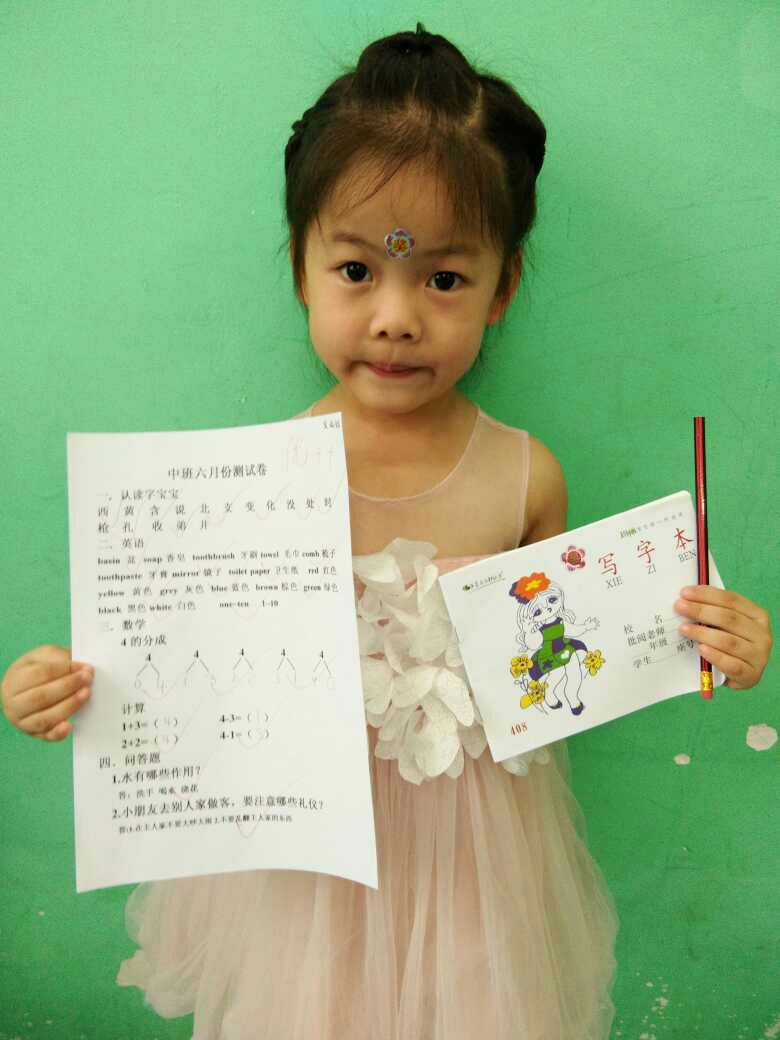 中班六月份测试卷
优++
一、认读字宝宝
西 黄 含 说 北 支 变 化 没 处 时
枪 孔 收 弟 井
二、英语
basin 盆 soap 香皂 toothbrush 牙刷 towel 毛巾 comb 梳子
toothpaste 牙膏 mirror 镜子 toilet paper 卫生纸 red 红色
yellow 黄色 grey 灰色 blue 蓝色 brown 棕色 green 绿色
black 黑色 white 白色 one-ten 1-10
三、数学
4 的分成
4 4 4 4 4
计算
1+3=(4) 4-3=(1)
2+2=(4) 4-1=(3)
四、问答题
1.水有哪些作用?
答:洗手 喝水 浇花
2.小朋友去别人家做客,要注意哪些礼仪?
答:1.在主人家不要大呼大闹 2.不要乱翻主人家的东西
奖
写字本
XIE ZI BEN
校 名
批阅老师
年级
学生 座号
408